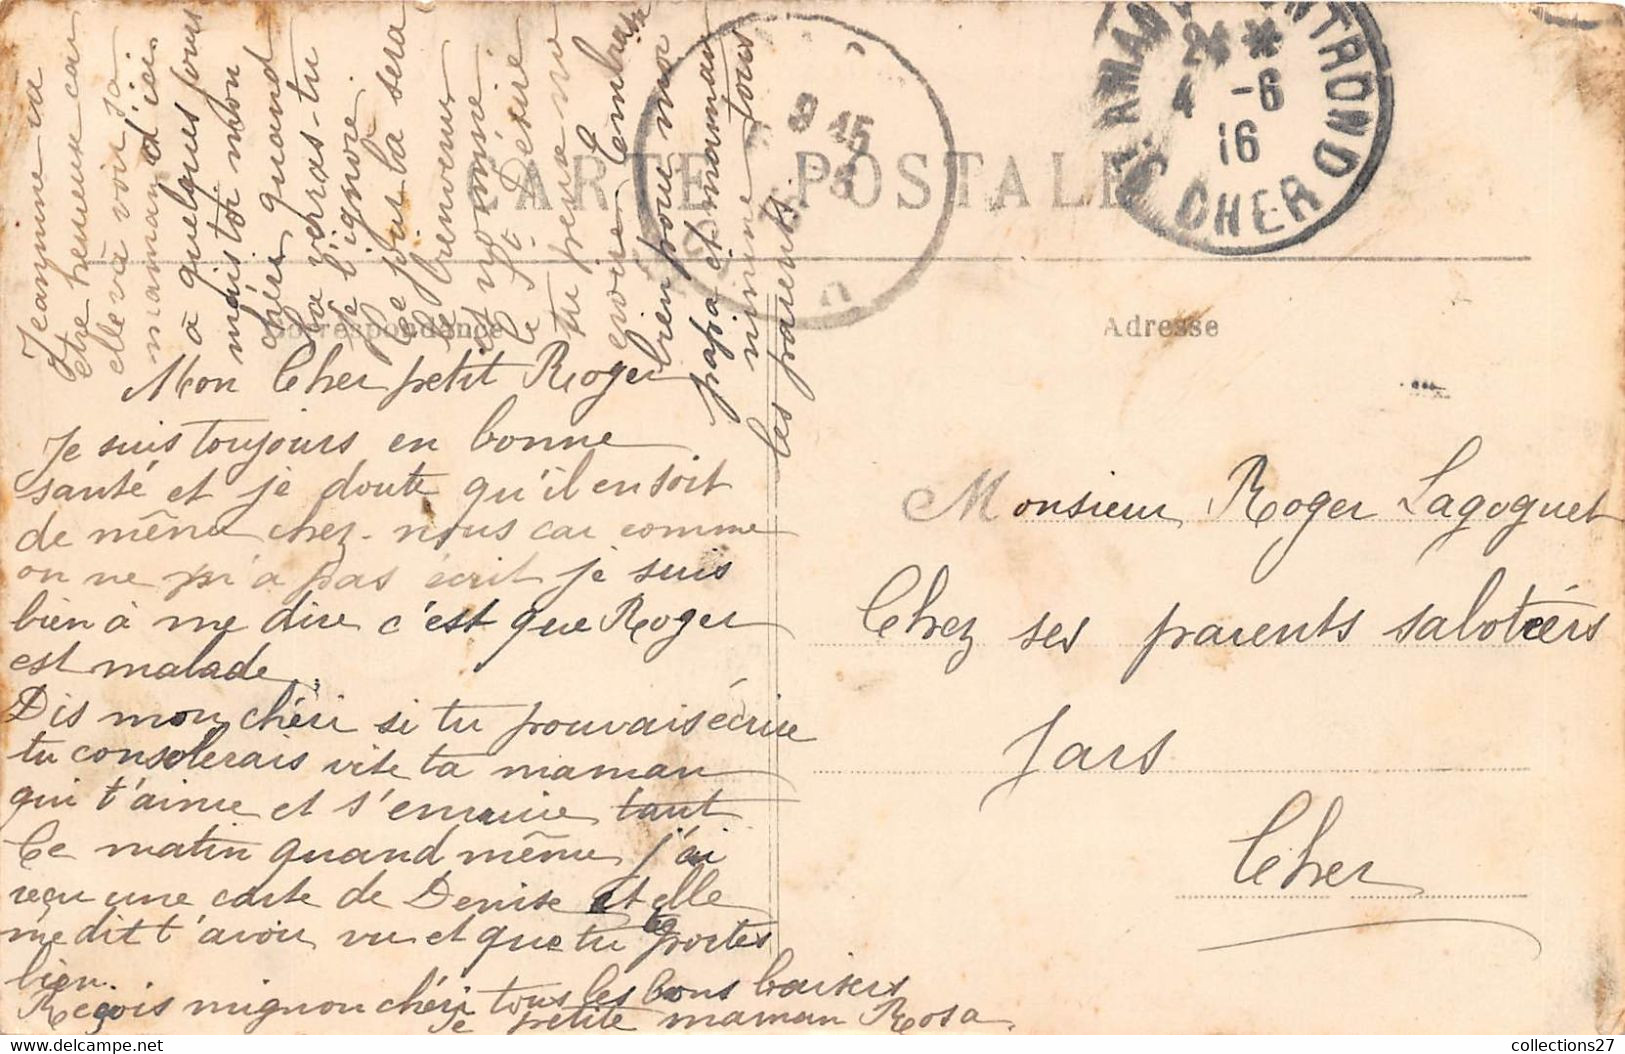 CARTE POSTALE
Correspondance
Adresse
Mon Cher petit Roger
Je suis toujours en bonne
santé et je doute qu'il en soit
de même chez-nous car comme
on ne m'a pas écrit je suis
bien à me dire c'est que Roger
est malade.
Dis mon chéri si tu pouvais écrire
tu consolerais vite ta maman
qui t'aime et s'ennuie tant
Ce matin quand même j'ai
reçu une carte de Denise et elle
me dit t'avoir vu et que tu te portes
bien.
Reçois mignon chéri tous les bons baisers
Te petite maman Rosa
Jeanne va
être heureuse car
elle va voir sa
maman d'ici
à quelques jours
mais toi mon
chéri quand
la verras-tu
je l'ignore.
Ce jour là sera
le bienvenu
et nommé
le St Désiré
embrasse
bien pour moi
papa et maman
mimine tous
les parents
Monsieur Roger Lagoguet
Chez ses parents sabotiers
Jars
Cher
ST AMAND MONTROND
CHER
24 *
4 -6
16
9 45
collections27